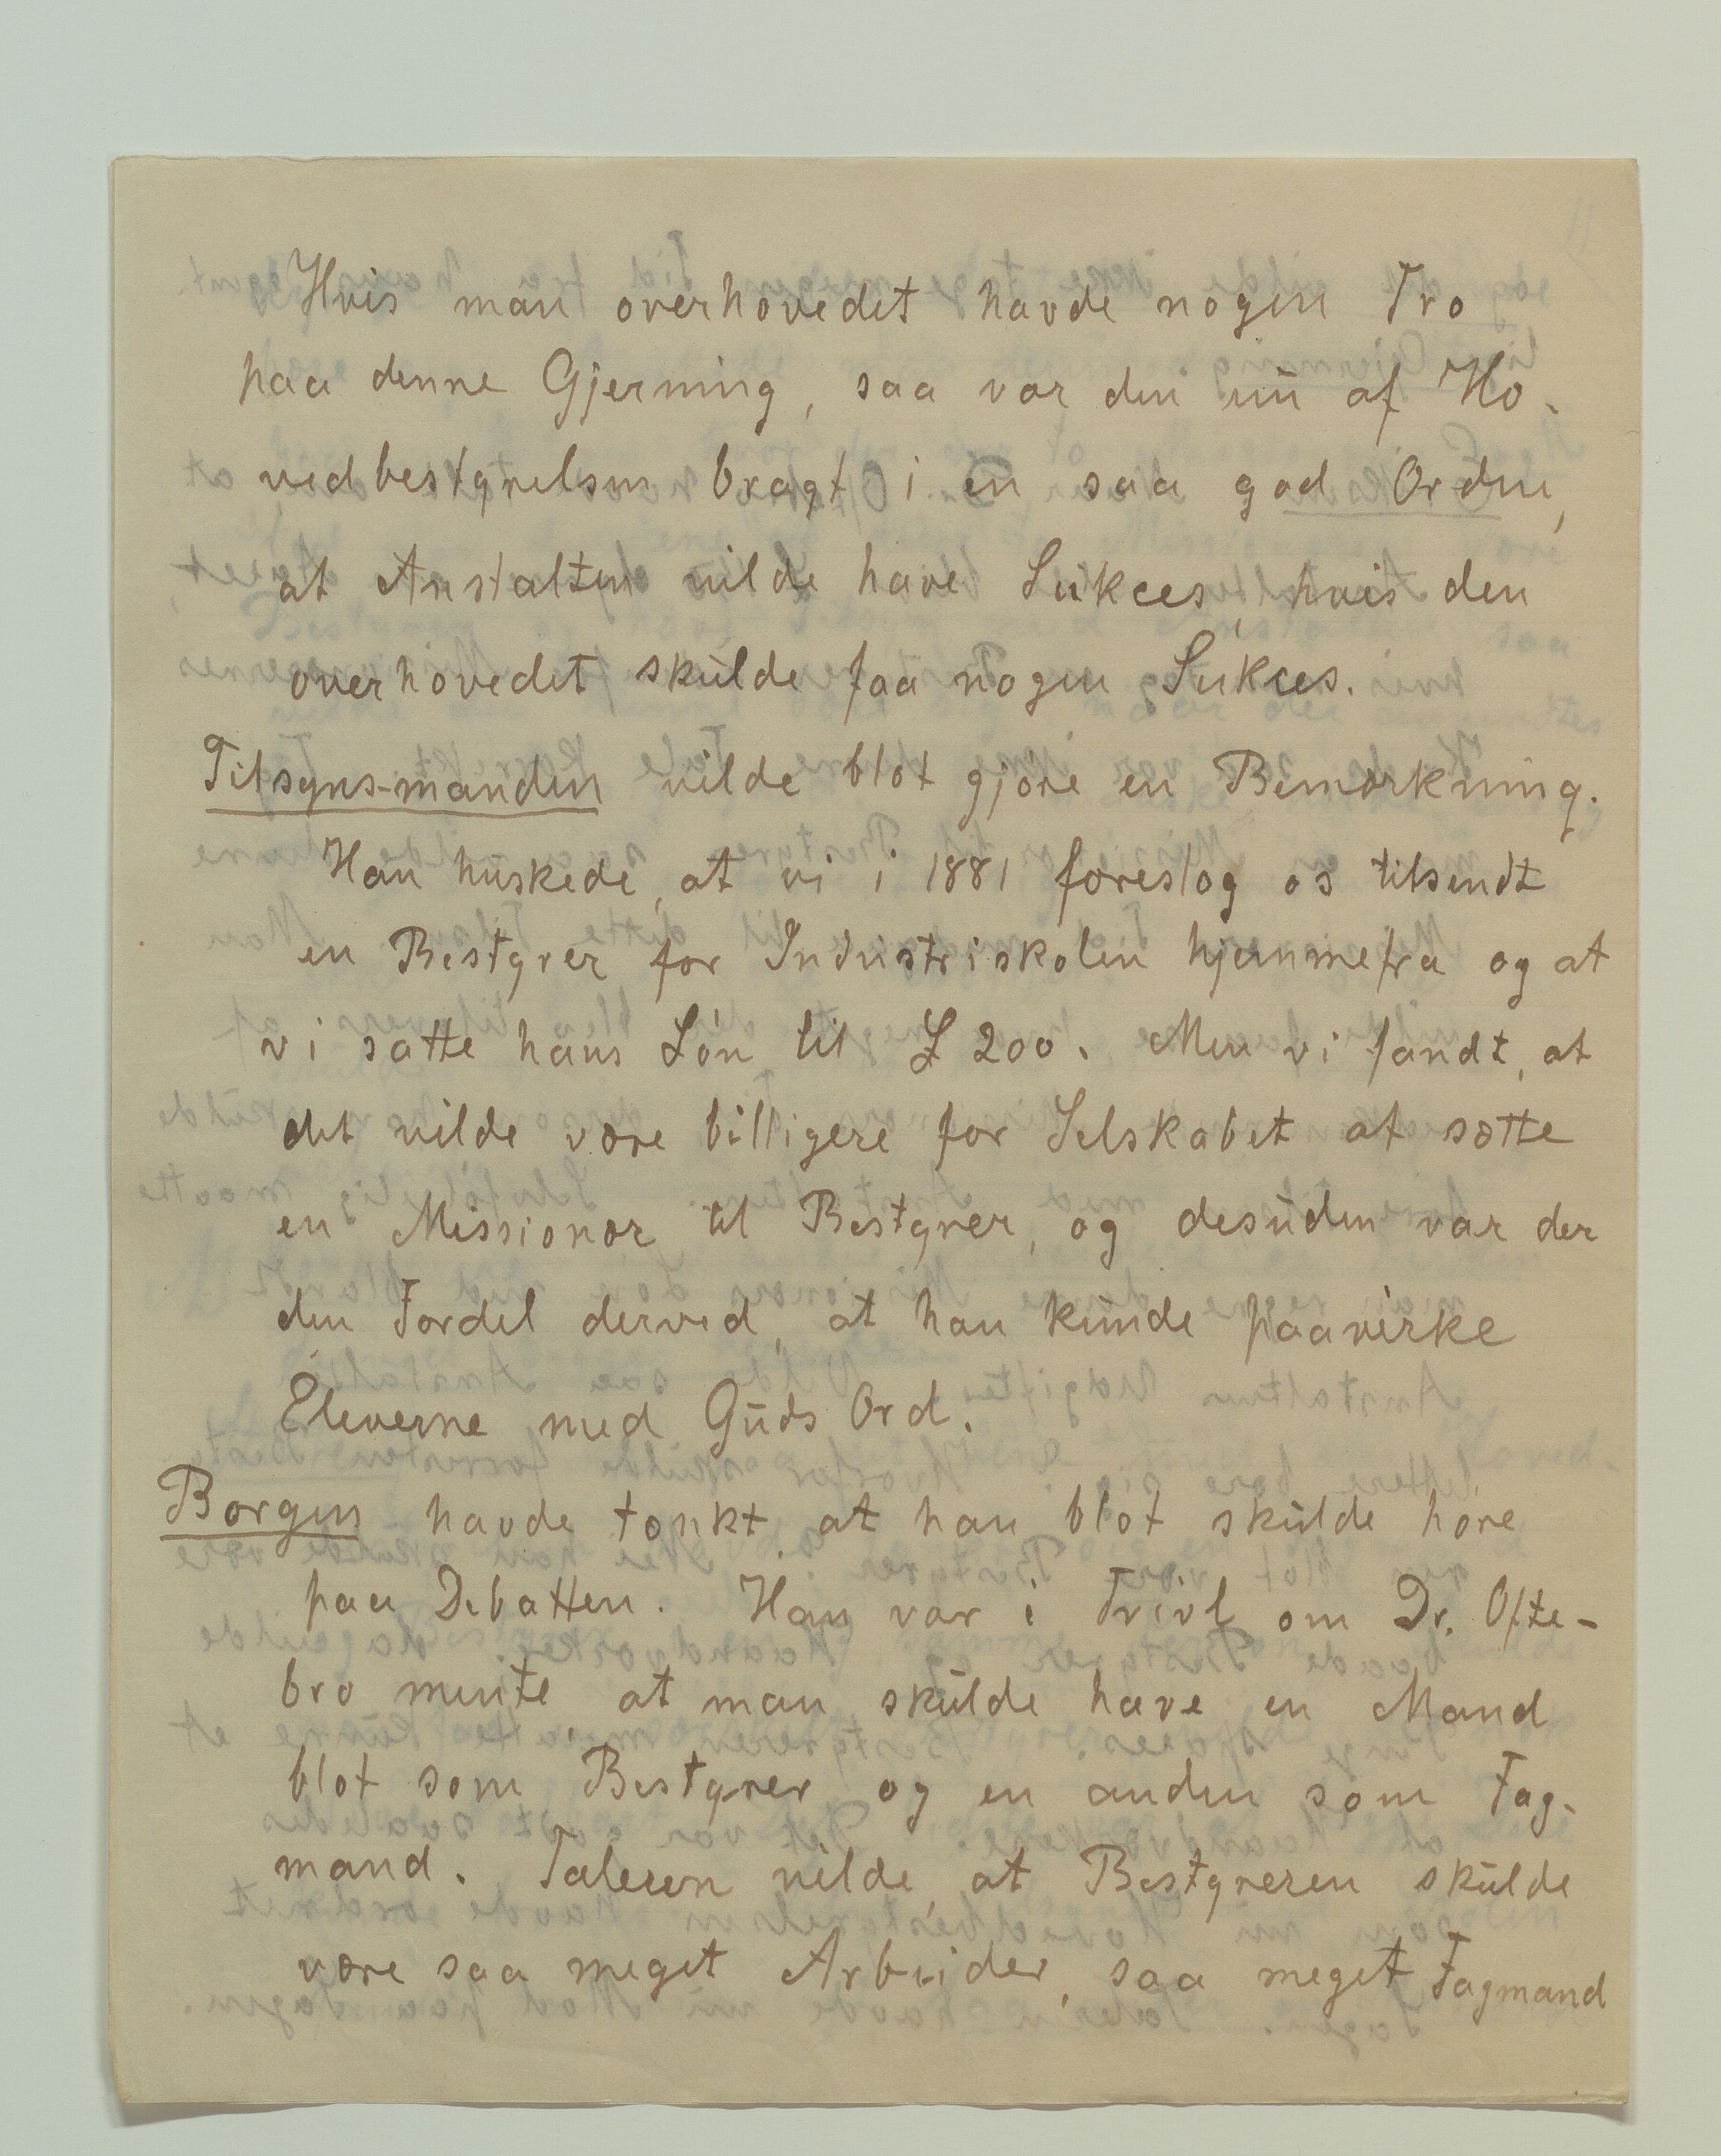 Hvis man overhovedet havde nogen Tro
paa denne Gjerning, saa var den nu af Ho-
vedbestyrelsen bragt i en saa god Orden,
at Anstalten vilde have Sukces, hvis den
overhovedet skulde faa nogen Sukces.
Tilsyns-manden vilde blot gjøre en Bemærkning.
Han huskede, at vi i 1881 foreslog os tilsendt
en Bestyrer for Industriskolen hjemmefra og at
vi satte hans Løn til £ 200. Men vi fandt, at
det vilde være billigere for Selskabet at sætte
en Missionær til Bestyrer, og desuden var der
den Fordel derved, at han kunde paavirke
Eleverne med Guds Ord.
Borgen havde tænkt, at han blot skulde høre
paa Debatten. Han var i Tvivl om Dr. Ofte-
bro mente, at man skulde have en Mand
blot som Bestyrer og en anden som Fag-
mand. Taleren vilde, at Bestyreren skulde
være saa meget Arbeider, saa meget Fagmand